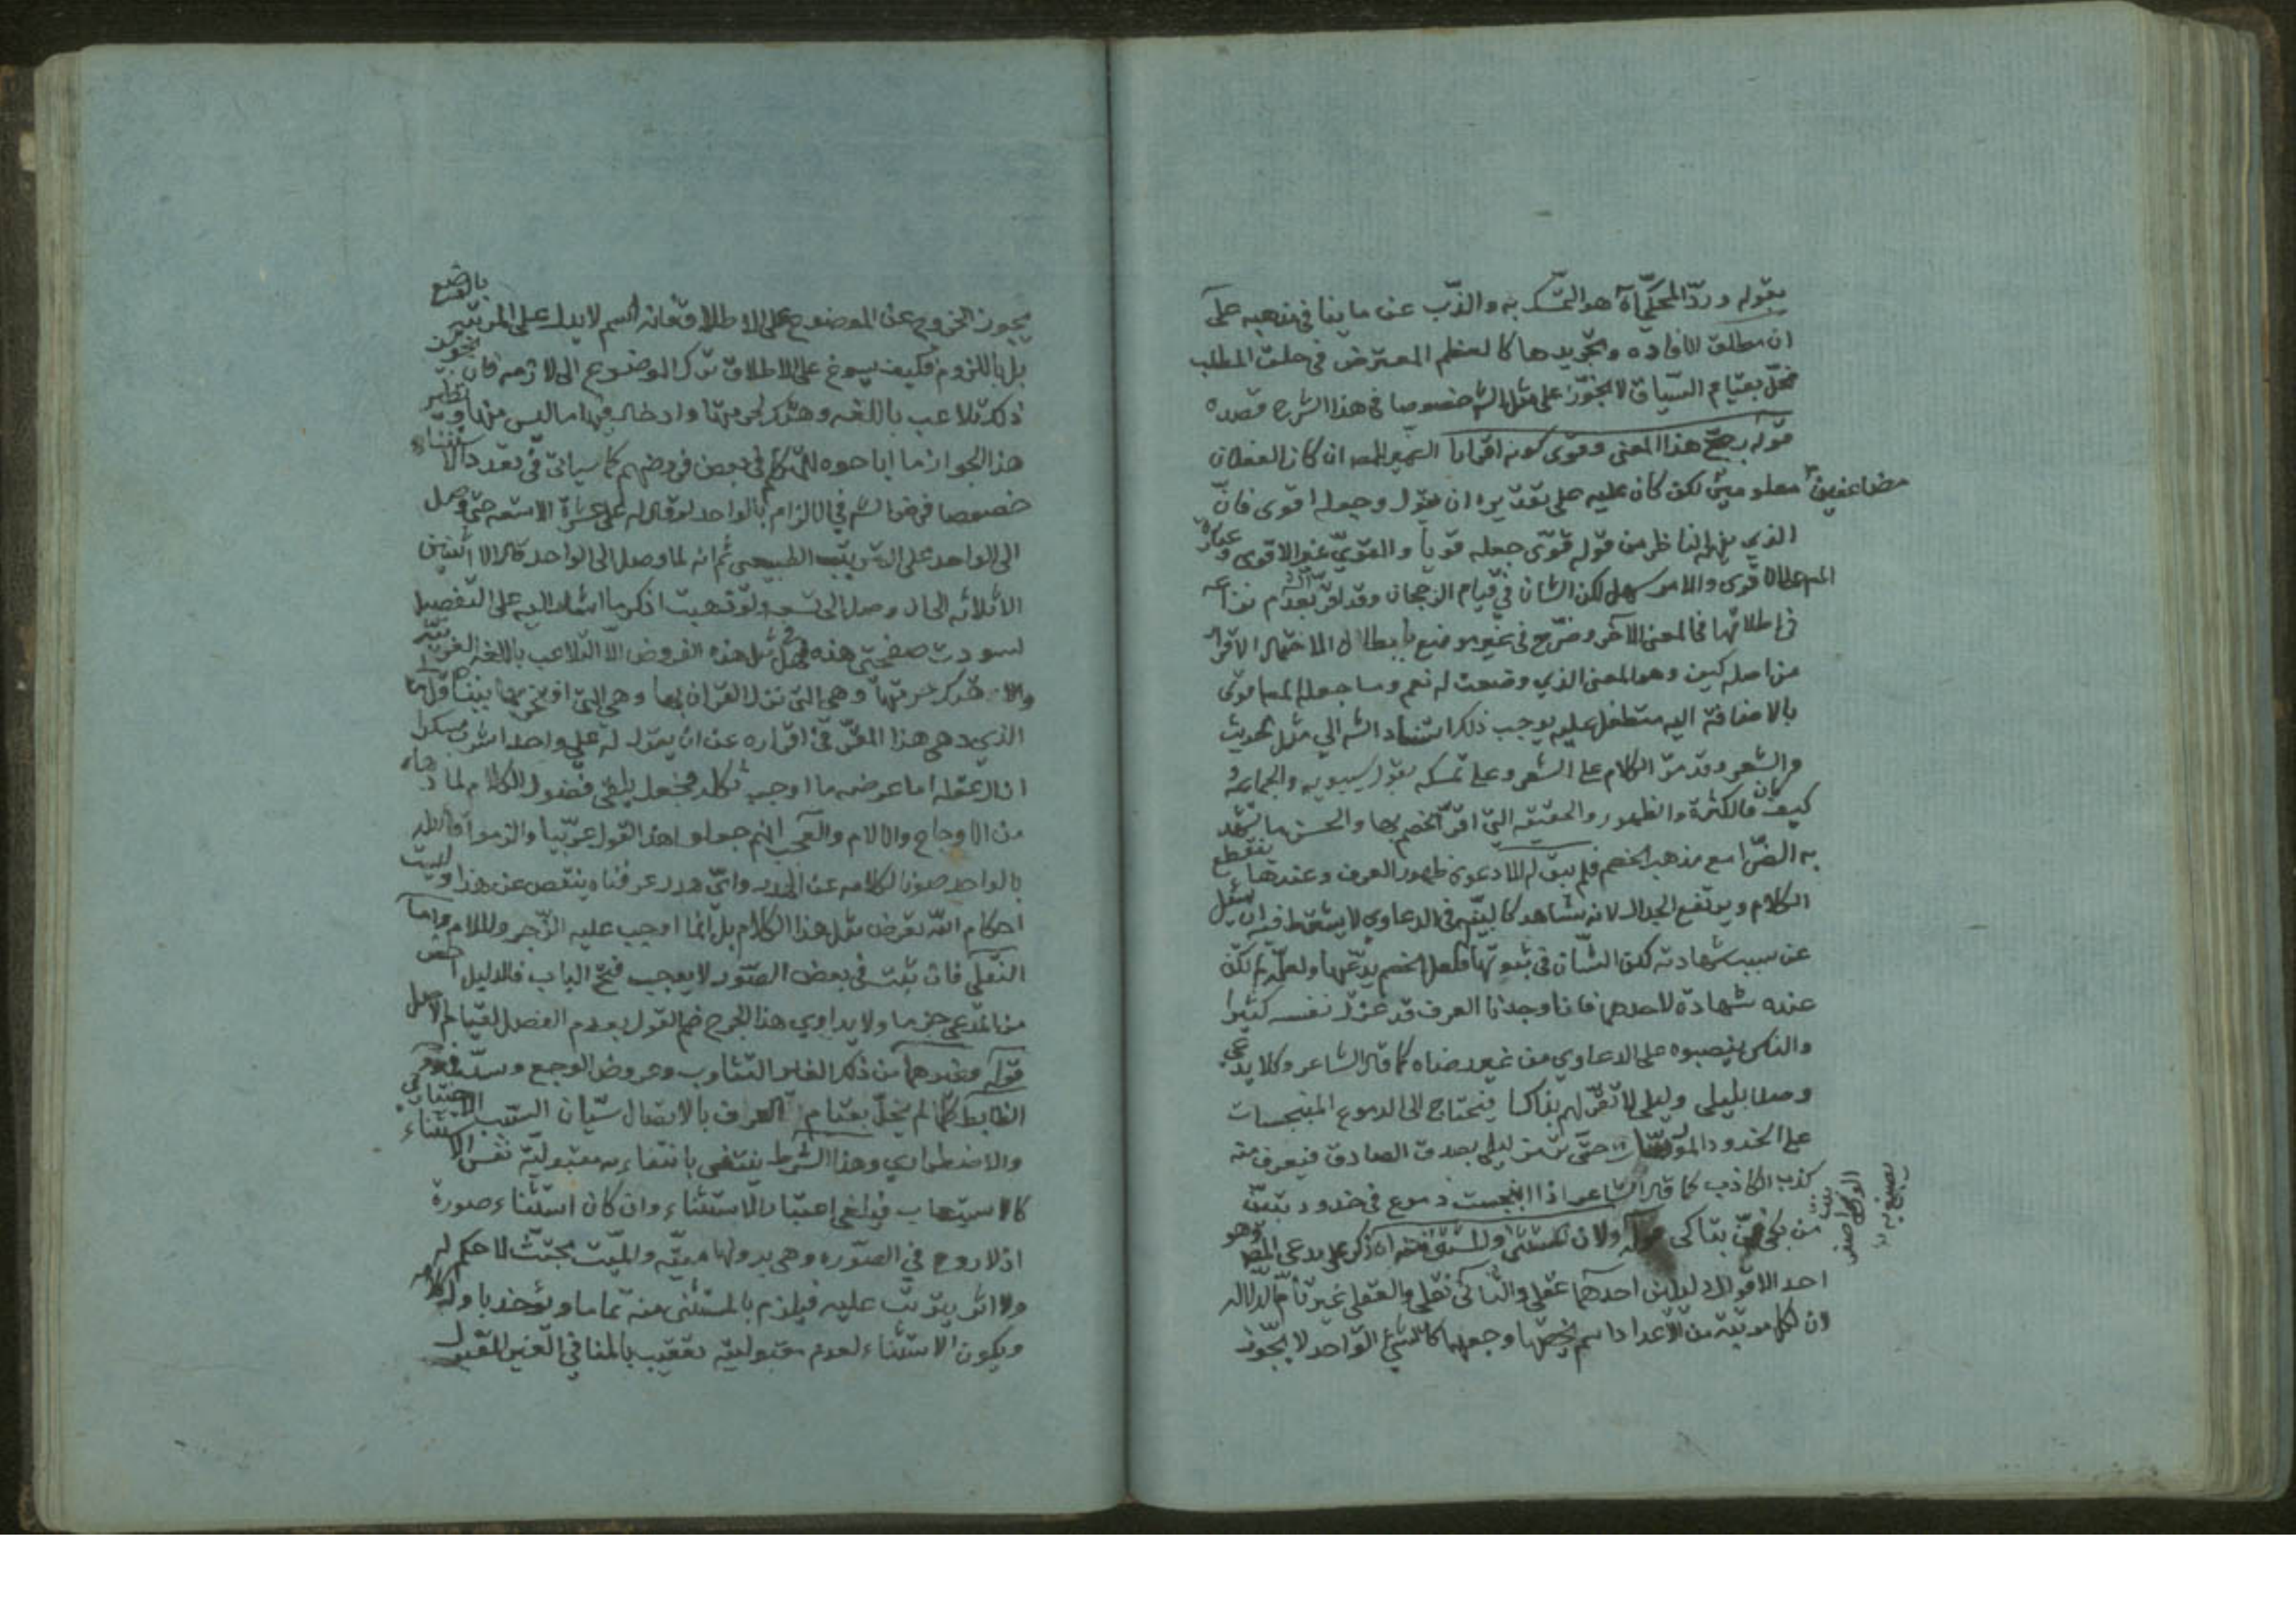 بقوله وردّ المحكيّ آه هو التمسّك به والذّب عن ما ينافي مذهبه حتّى
ان مطلق الافاده وتجريدها كالعظم المعترض في حلق المطلب
مخلّ بقيام السّياق لا يجوّز على مثل الشه خصوصا في هذا الشرح قصده
قوله رجّح هذا المعنى وقوّى كونه اقرارا المص ان كان الفعلان
معلومين لكن كان عليه على تقديره ان يقول وجعله اقوى فانّ
الذي يفهم الناظر من قوله قوّى جعله قويا والقويّ غير الاقوى وعبارة
المص على الاقوى والامر سهل لكن الشان في قيام الرجحان وقد اقرّ بعدم نزاعه
في اطلاقها في المعنى الآخر وصرّح في غير موضع بابطال الاحتمال الاقرار
من اصله كيف وهو المعنى الذي وضعت له نعم وما جعله المص قوى
بالاضافة اليه متطفل عليه يوجب ذلك استناد الشه الي مثل الحديث
والشعر وقد مرّ الكلام على الشعر وعلى تمسكه بقول سيبويه والجماعه و
كيف كان فالكثرة والظهور والحقيقه التي اقرّ الخصم بها والحسن ما تشهد
به الضرّا مع مذهب الخصم فلم يبق له الا دعوى ظهور العرف وعندها ينقطع
الكلام ويرتفع الجدال لانه شاهد كالبيّنه في الدعاوي لا يشترط فيه ان يسئل
عن سبب شهادته لكن الشّان في ثبوتها فلعل الخصم يدّعيها ولعلّه لم تكن
عنده شهادة لاحدهما فانا وجدنا العرف قد عزل نفسه كثيرا
والناس ينصبوه على الدعاوي من غير رضاه كما قال الشاعر وكلا يدّعي
وصلا بليلى وليلى لا تقرّ لهم بذاكا فنحتاج الى الدموع المنبجسات
على الخدود حتّى تتميز ليلى بصدق الصادق فيعرف منه
كذب الكاذب كما قال الشاعر اذا انبجست دموع في خدود تبيّن
من بكى ممّن تباكى قوله ولان المستثنى والمستثنى منه آه ذكر على مدعى المص وهو
احد الاقوال دليلين احدهما عقلي والثّاني نقلي والعقلي غير تامّ الدّلاله
لان لكل مرتبة من الاعداد اسم يخصّها وجعلها كالشيئ الواحد لا يجوّز
يجوز الخروج عن الموضوع على الاطلاق فانه اسم لا يدل على المرتبة بالوضع
بل باللزوم فكيف يسوغ على الاطلاق ترك الموضوع الى لازمه فان تجويز
ذلك تلاعب باللغه وهتك لحرمتها وادخال فيها ما ليس منها ونظير
هذا الجواز ما اباحوه للمتكلّم في بعض فروضهم كما سيأتي في تعدد الاستثناء
خصوصا فرض الشه في الالزام بالواحد لو قال له علي عشرة الا تسعه حتّى وصل
الى الواحد على الترتيب الطبيعي ثم انه لما وصل الى الواحد قال الا اثنين
الا ثلاثه الى ان وصل الى تسعه ولو ذهبت اذكر ما اشار اليه على التفصيل
لسودت صفحتي هذه فهل مثل هذه الفروض الا التلاعب باللغه العربيّه
والا هتك حرمتها وهي التي نزل القران بها وهي التي افتخر بها نبينا
الذي دهى هذا المقرّ في اقراره عن ان يقول له علي واحدا شرب مسكرا
ازال عقله اما عرضه ما اوجب فجعل يلقي فضول الكلام لما دهاه
من الاوجاع والالام والعجب انهم جعلوا هذا القول عربّيا والزموا قائله
بالواحد صونا لكلامه عن الهدر وايّ هدر عرفناه ينقص عن هذا وليت
احكام الله تفرض مثل هذا الكلام بل انما اوجب عليه الزّجر والملام وامّا
النقلي فان ثبت في بعض الصّور لا يوجب فتح الباب فالدليل اخصّ
من المدّعى جزما ولا يداوي هذا الجرح ضم القول بعدم الفصل لقيام الاصل
قوله وغيرهما من ذلك الفائر التثاوب وعروض الوجع وسدّ فوه
الضابط كلّما لم يخلّ بقيام العرف بالاتصال سيّان السبب الاختياري
والاضطراري وهذا الشرط ينتفي بانتفاءه مقبوليّة نفس الاستثناء
كالاستيعاب فيلغى اعتبار الاستثناء وان كان استثناء صورة
اذ لا روح في الصّوره وهي بدونها ميّته والميّت مجتثّ لا حكم له
ولا اثر يترتّب عليه فيلزم بالمستثنى منه تماما ويؤخذ باول كلامه
ويكون الاستثناء لعدم مقبوليته تعقيب بالمنافي الغير المقبول